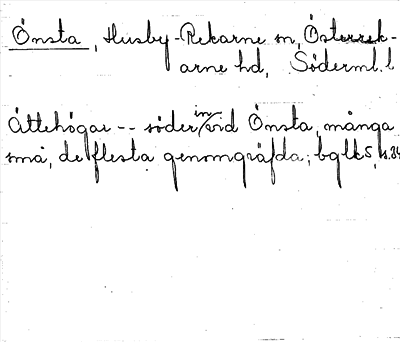 Önsta, Husby-Rekarne sn, Österrek-
arne hd, Söderml. l
Ättehögar -- söder in/vid Önsta, många
små, de flesta genomgräfda; bglk 5, s. 84